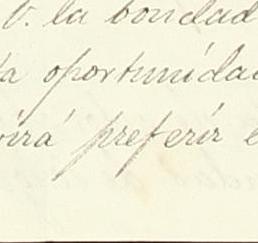 V. la bondad
ta oportunidad
virá preferir e